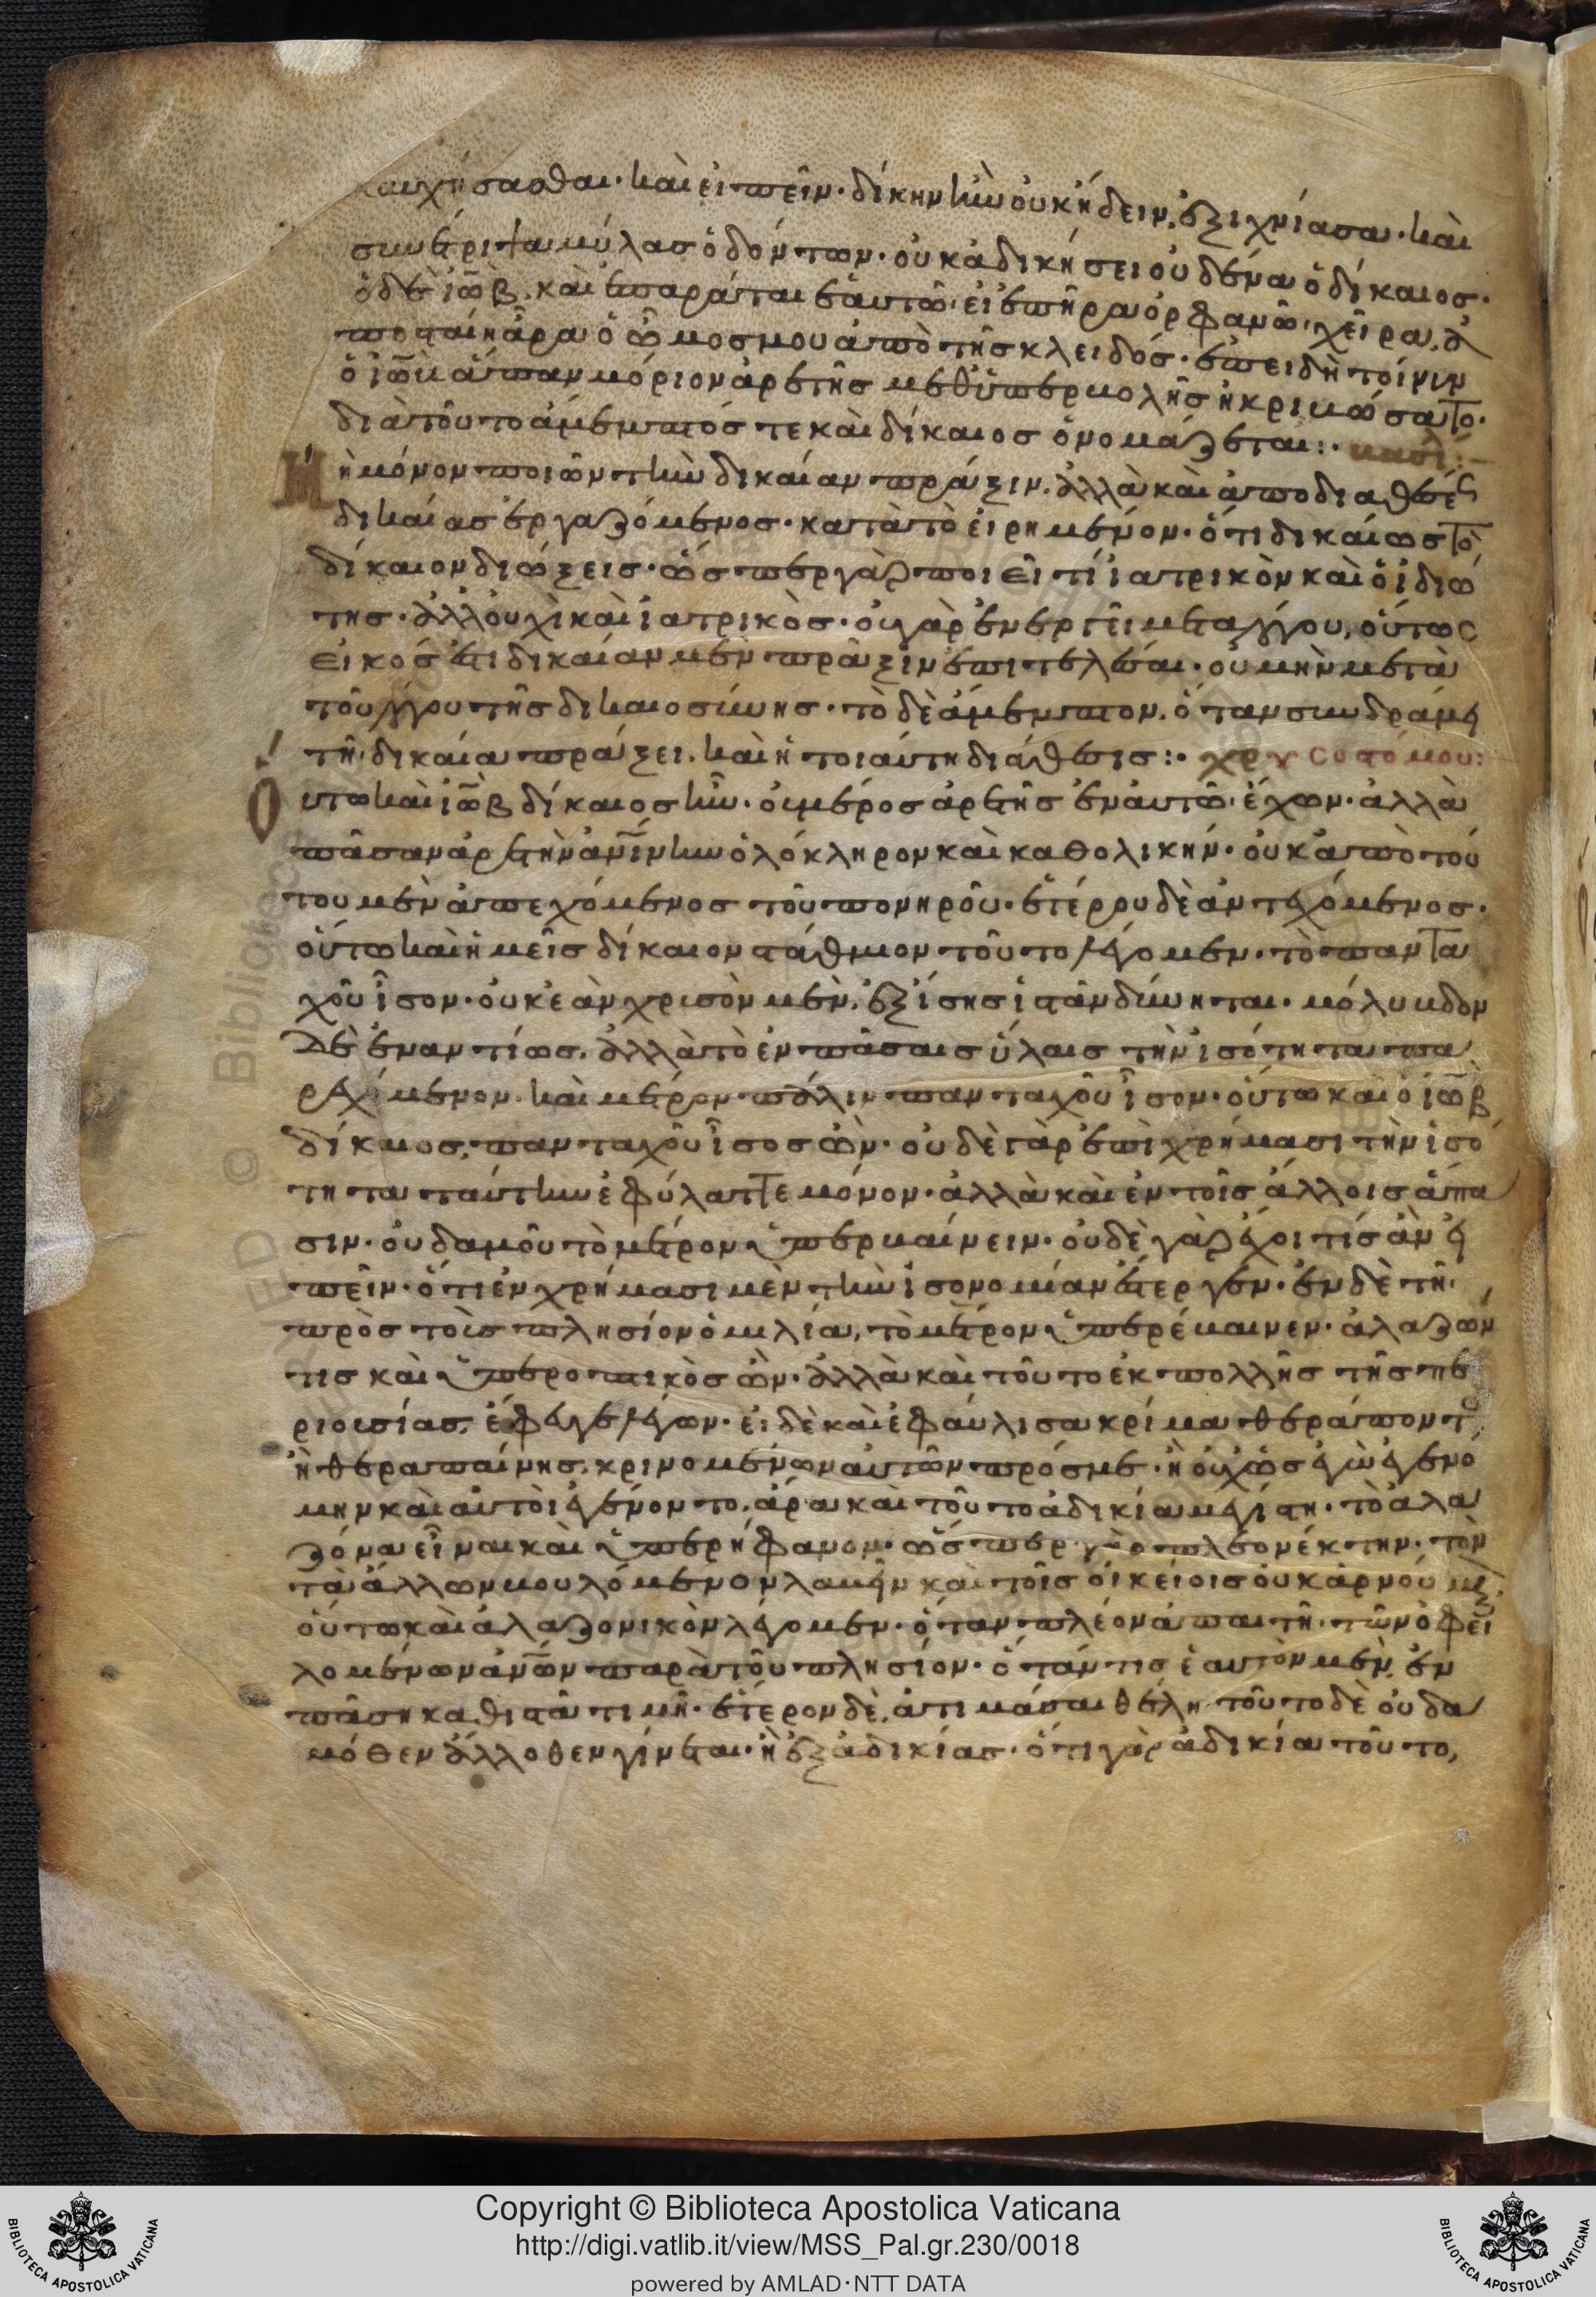 καυχήσασθαι· καὶ εἰπεῖν· δίκην ἣν οὐκ ᾔδειν, ἐξιχνίασα· καὶ
συνέτριψα μύλας ὀδόντων· οὐκ ἀδικήσει οὐδένα ὁ δίκαιος·
ὁ δὲ ἰὼβ, καὶ ἐπαρᾶται ἑαυτῶ· εἰ ἐπῆρα ὀρφανῶ χεῖρα, ἀ
ποσταίη ἄρα ὁ ὦμός μου ἀπὸ τῆς κλειδός· ἐπειδὴ τοίνυν
ὁ ἰὼβ ἅπαν μόριον ἀρετῆς μεθ' ὑπερβολῆς ἠκριβώσατο·
διὰ τοῦτο ἄμεμπτός τε καὶ δίκαιος ὀνομάζεται:· βασιλ:
Μ ὴ μόνον ποιῶν τὴν δικαίαν πρᾶξιν, ἀλλὰ καὶ ἀπὸ διαθέσε
δικαίας ἐργαζόμενος· κατὰ τὸ εἰρημένον· ὅτι δικαίως τὸ
δίκαιον διώξεις· ὥσπερ γὰρ ποιεῖ τι ἰατρικὸν καὶ ὁ ἰδιώ
της· ἀλλ' οὐχὶ καὶ ἰατρικὸς· οὐ γὰρ ἐνεργεῖ μετὰ λόγου, οὕτως
εἰκός ἐστι δικαίαν μὲν πρᾶξιν ἐπιτελέσαι· οὐ μὴν μετὰ
τοῦ λόγου τῆς δικαιοσύνης· τὸ δὲ ἄμεμπτον, ὅταν συνδράμη
τῆ δικαία πράξει, καὶ ἡ τοιαύτη διάθεσις:· χρυσοστόμου:
Ο ὕτω καὶ ἰὼβ δίκαιος ἦν· οὐ μέρος ἀρετῆς ἐν αὐτῶ ἔχων· ἀλλὰ
πᾶσαν ἀρετὴν ἀνίνην ὁλόκληρον καὶ καθολικήν· οὐκ ἀπὸ τού
του μὲν ἀπεχόμενος τοῦ πονηροῦ· ἑτέρου δὲ ἀντεχόμενος·
οὕτω καὶ ἡμεῖς δίκαιον στάθμιον τοῦτο λέγομεν· τὸ παντα
χοῦ ἶσον· οὐκ ἐὰν χρυσὸν μὲν, ἐξ ἴσης ἱστᾶν δύνηται· μόλυβδον
δὲ ἐναντίως, ἀλλὰ τὸ ἐν πάσαις ὕλαις τὴν ἰσότητα πα
ρεχόμενον· καὶ μέτρον πάλιν πανταχοῦ ἶσον· οὕτω καὶ ὁ ἰὼβ
δίκαιος, πανταχοῦ ἶσος ὢν· οὐδὲ γὰρ ἐπὶ χρήμασι τὴν ἰσό
τητα ταύτην ἐφύλαττε μόνον· ἀλλὰ καὶ ἐν τοῖς ἄλλοις ἅπα
σιν· οὐδαμοῦ τὸ μέτρον ὑπερβαίνειν· οὐδὲ γὰρ ἔχοι τίς ἂν εἰ
πεῖν· ὅτι ἐν χρήμασι μὲν τὴν ἰσονομίαν ἔστεργεν· ἐν δὲ τῆ
πρὸς τοὺς πλησίον ὁμιλία, τὸ μέτρον ὑπερέβαινεν· ἀλαζών
τις καὶ ὑπεροπτικὸς ὤν· ἀλλὰ καὶ τοῦτο ἐκ πολλῆς τῆς πε
ριουσίας, ἔφευγε λέγων· εἰ δὲ καὶ ἐφαύλισα κρίμα θεράποντος
ἢ θεραπαίνης, κρινομένων αὐτῶν πρός με· ἢ οὐχ ὡς ἐγὼ ἐγενό
μην καὶ αὐτοὶ ἐγένοντο, ἄρα καὶ τοῦτο ἀδικία μεγίστη· τὸ ἀλα
ζόνα εἶναι καὶ ὑπερήφανον· ὥσπερ γὰρ πλεονέκτην· τὸν
τὰ ἄλλων βουλόμενον λαβεῖν καὶ τοῖς οἰκείοις οὐκ ἀρκού
οὕτω καὶ ἀλαζονικὸν λέγομεν· ὅταν πλέον ἀπαιτῆ τῶν ὀφει
λομένων παρὰ τοῦ πλησίον· ὅταν τις ἑαυτὸν μὲν, ἐν
πάση καθιστᾶ τιμῆ· ἕτερον δὲ, ἀτιμάσαι θέλη· τοῦτο δὲ οὐδα
μόθεν ἄλλοθεν γίνεται· ἢ ἐξ ἀδικίας· ὅτι γὰρ ἀδικία τοῦτο,
Copyright © Biblioteca Apostolica Vaticana
http://digi.vatlib.it/view/MSS_Pal.gr.230/0018
powered by AMLAD·NTT DATA
BIBLIOTECA APOSTOLICA VATICANA
BIBLIOTECA APOSTOLICA VATICANA